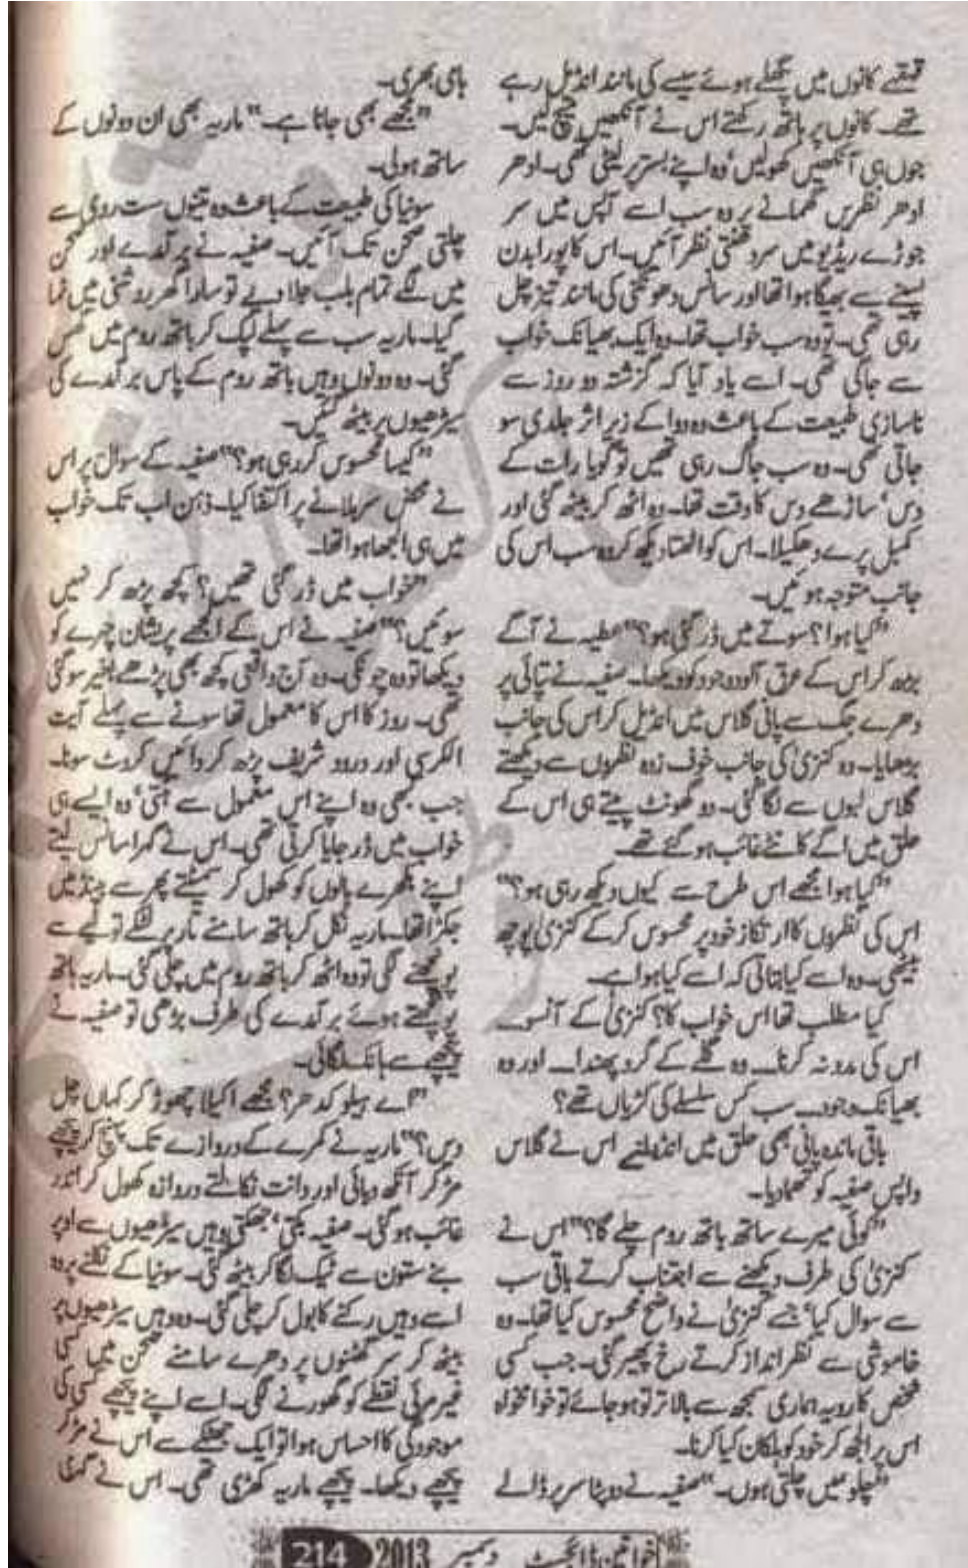 قہقہے کانوں میں پگھلے ہوئے سیسے کی مانند انڈیل رہے
تھے۔ کانوں پر ہاتھ رکھتے اس نے آنکھیں میچ لیں۔
جوں ہی آنکھیں کھولیں وہ اپنے بستر پر لیٹی تھی۔ ادھر
ادھر نظریں گھمانے پر وہ سب اسے آپس میں سر
جوڑے ریڈیو میں سر دھنتی نظر آئیں۔ اس کا پورا بدن
پسینے سے بھیگا ہوا تھا اور سانس دھونکنی کی مانند تیز چل
رہی تھی۔ تو وہ سب خواب تھا۔ وہ ایک بھیانک خواب
سے جاگی تھی۔ اسے یاد آیا کہ گزشتہ دو روز سے
ناسازی طبیعت کے باعث وہ دوا کے زیر اثر جلدی سو
جاتی تھی۔ وہ سب جاگ رہی تھیں تو گویا رات کے
دس' ساڑھے دس کا وقت تھا۔ وہ اٹھ کر بیٹھ گئی اور
کمبل پرے دھکیلا۔ اس کو اٹھتا دیکھ کر وہ سب اس کی
جانب متوجہ ہوئیں۔
"کیا ہوا؟ سوتے میں ڈر گئی ہو؟" عطیہ نے آگے
بڑھ کر اس کے عرق آلود وجود کو دیکھا۔ صفیہ نے تپائی پر
دھرے جگ سے پانی گلاس میں انڈیل کر اس کی جانب
بڑھایا۔ وہ کنزیٰ کی جانب خوف زدہ نظروں سے دیکھتے
گلاس لبوں سے لگا گئی۔ دو گھونٹ پیتے ہی اس کے
حلق میں اگے کانٹے غائب ہو گئے تھے۔
"کیا ہوا مجھے اس طرح سے کیوں دیکھ رہی ہو؟"
اس کی نظروں کا ارتکاز خود پر محسوس کر کے کنزیٰ پوچھ
بیٹھی۔ وہ اسے کیا بتاتی کہ اسے کیا ہوا ہے۔
کیا مطلب تھا اس خواب کا؟ کنزیٰ کے آنسو۔
اس کی مدد نہ کرنا۔ وہ گلے کے گرد پھندا۔ اور وہ
بھیانک وجود۔ سب کس سلسلے کی کڑیاں تھے؟
باقی ماندہ پانی بھی حلق میں انڈیلتے اس نے گلاس
واپس صفیہ کو تھما دیا۔
"کوئی میرے ساتھ باتھ روم چلے گا؟" اس نے
کنزیٰ کی طرف دیکھنے سے اجتناب کرتے باقی سب
سے سوال کیا' جسے کنزیٰ نے واضح محسوس کیا تھا۔ وہ
خاموشی سے نظر انداز کرتے رخ پھیر گئی۔ جب کسی
شخص کا رویہ ہماری سمجھ سے بالاتر تو ہو جائے تو خوامخواہ
اس پر الجھ کر خود کو ہلکان کیا کرنا۔
"چلو میں چلتی ہوں۔" صفیہ نے دوپٹا سر پر ڈالے
ہامی بھری۔
"مجھے بھی جانا ہے۔" ماریہ بھی ان دونوں کے
ساتھ ہولی۔
سونیا کی طبیعت کے باعث وہ تینوں ست روی سے
چلتی صحن تک آئیں۔ صفیہ نے برآمدے اور صحن
میں لگے تمام بلب جلا دیے تو سارا گھر روشنی میں نہا
گیا۔ ماریہ سب سے پہلے لپک کر باتھ روم میں گھس
گئی۔ وہ دونوں وہیں باتھ روم کے پاس برآمدے کی
سیڑھیوں پر بیٹھ گئیں۔
"کیسا محسوس کر رہی ہو؟" صفیہ کے سوال پر اس
نے محض سر ہلانے پر اکتفا کیا۔ ذہن اب تک خواب
میں ہی الجھا ہوا تھا۔
"خواب میں ڈر گئی تھیں؟ کچھ پڑھ کر نہیں
سوئیں؟" صفیہ نے اس کے الجھے پریشان چہرے کو
دیکھا تو وہ چونکی۔ وہ آن واقعی کچھ بھی پڑھے بغیر سو گئی
تھی۔ روز کا اس کا معمول تھا سونے سے پہلے آیت
الکرسی اور درود شریف پڑھ کر دائیں کروٹ سونا۔
جب کبھی وہ اپنے اس معمول سے ہٹتی' وہ ایسے ہی
خواب میں ڈر جایا کرتی تھی۔ اس نے گہرا سانس لیتے
اپنے بکھرے بالوں کو کھول کر سمیٹتے پھر سے بینڈ میں
جکڑا تھا۔ ماریہ نکل کر ہاتھ سامنے تار پر لٹکے تولیے سے
پونچھنے لگی تو وہ اٹھ کر باتھ روم میں چلی گئی۔ ماریہ ہاتھ
پونچھتے ہوئے برآمدے کی طرف بڑھی تو صفیہ نے
پیچھے سے ہانک لگائی۔
"اے ہیلو کدھر؟ مجھے اکیلا چھوڑ کر کہاں چل
دیں؟" ماریہ نے کمرے کے دروازے تک پہنچ کر
مڑ کر آنکھ دبائی اور دانت نکالتے دروازہ کھول کر اندر
غائب ہو گئی۔ صفیہ بکتی' جھکتی وہیں سیڑھیوں سے اوپر
بنے ستون سے ٹیک لگا کر بیٹھ گئی۔ سونیا کے نکلنے پر وہ
اسے وہیں رکنے کا بول کر چلی گئی۔ وہ وہیں سیڑھیوں پر
بیٹھ کر سر گھٹنوں پر دھرے سامنے صحن میں کسی
غیر مرئی نقطے کو گھورنے لگی۔ اسے اپنے پیچھے کسی کی
موجودگی کا احساس ہوا تو ایک جھٹکے سے اس نے مڑ کر
پیچھے دیکھا۔ پیچھے ماریہ کھڑی تھی۔ اس نے گہری
خواتین ڈائجسٹ دسمبر 2013 214